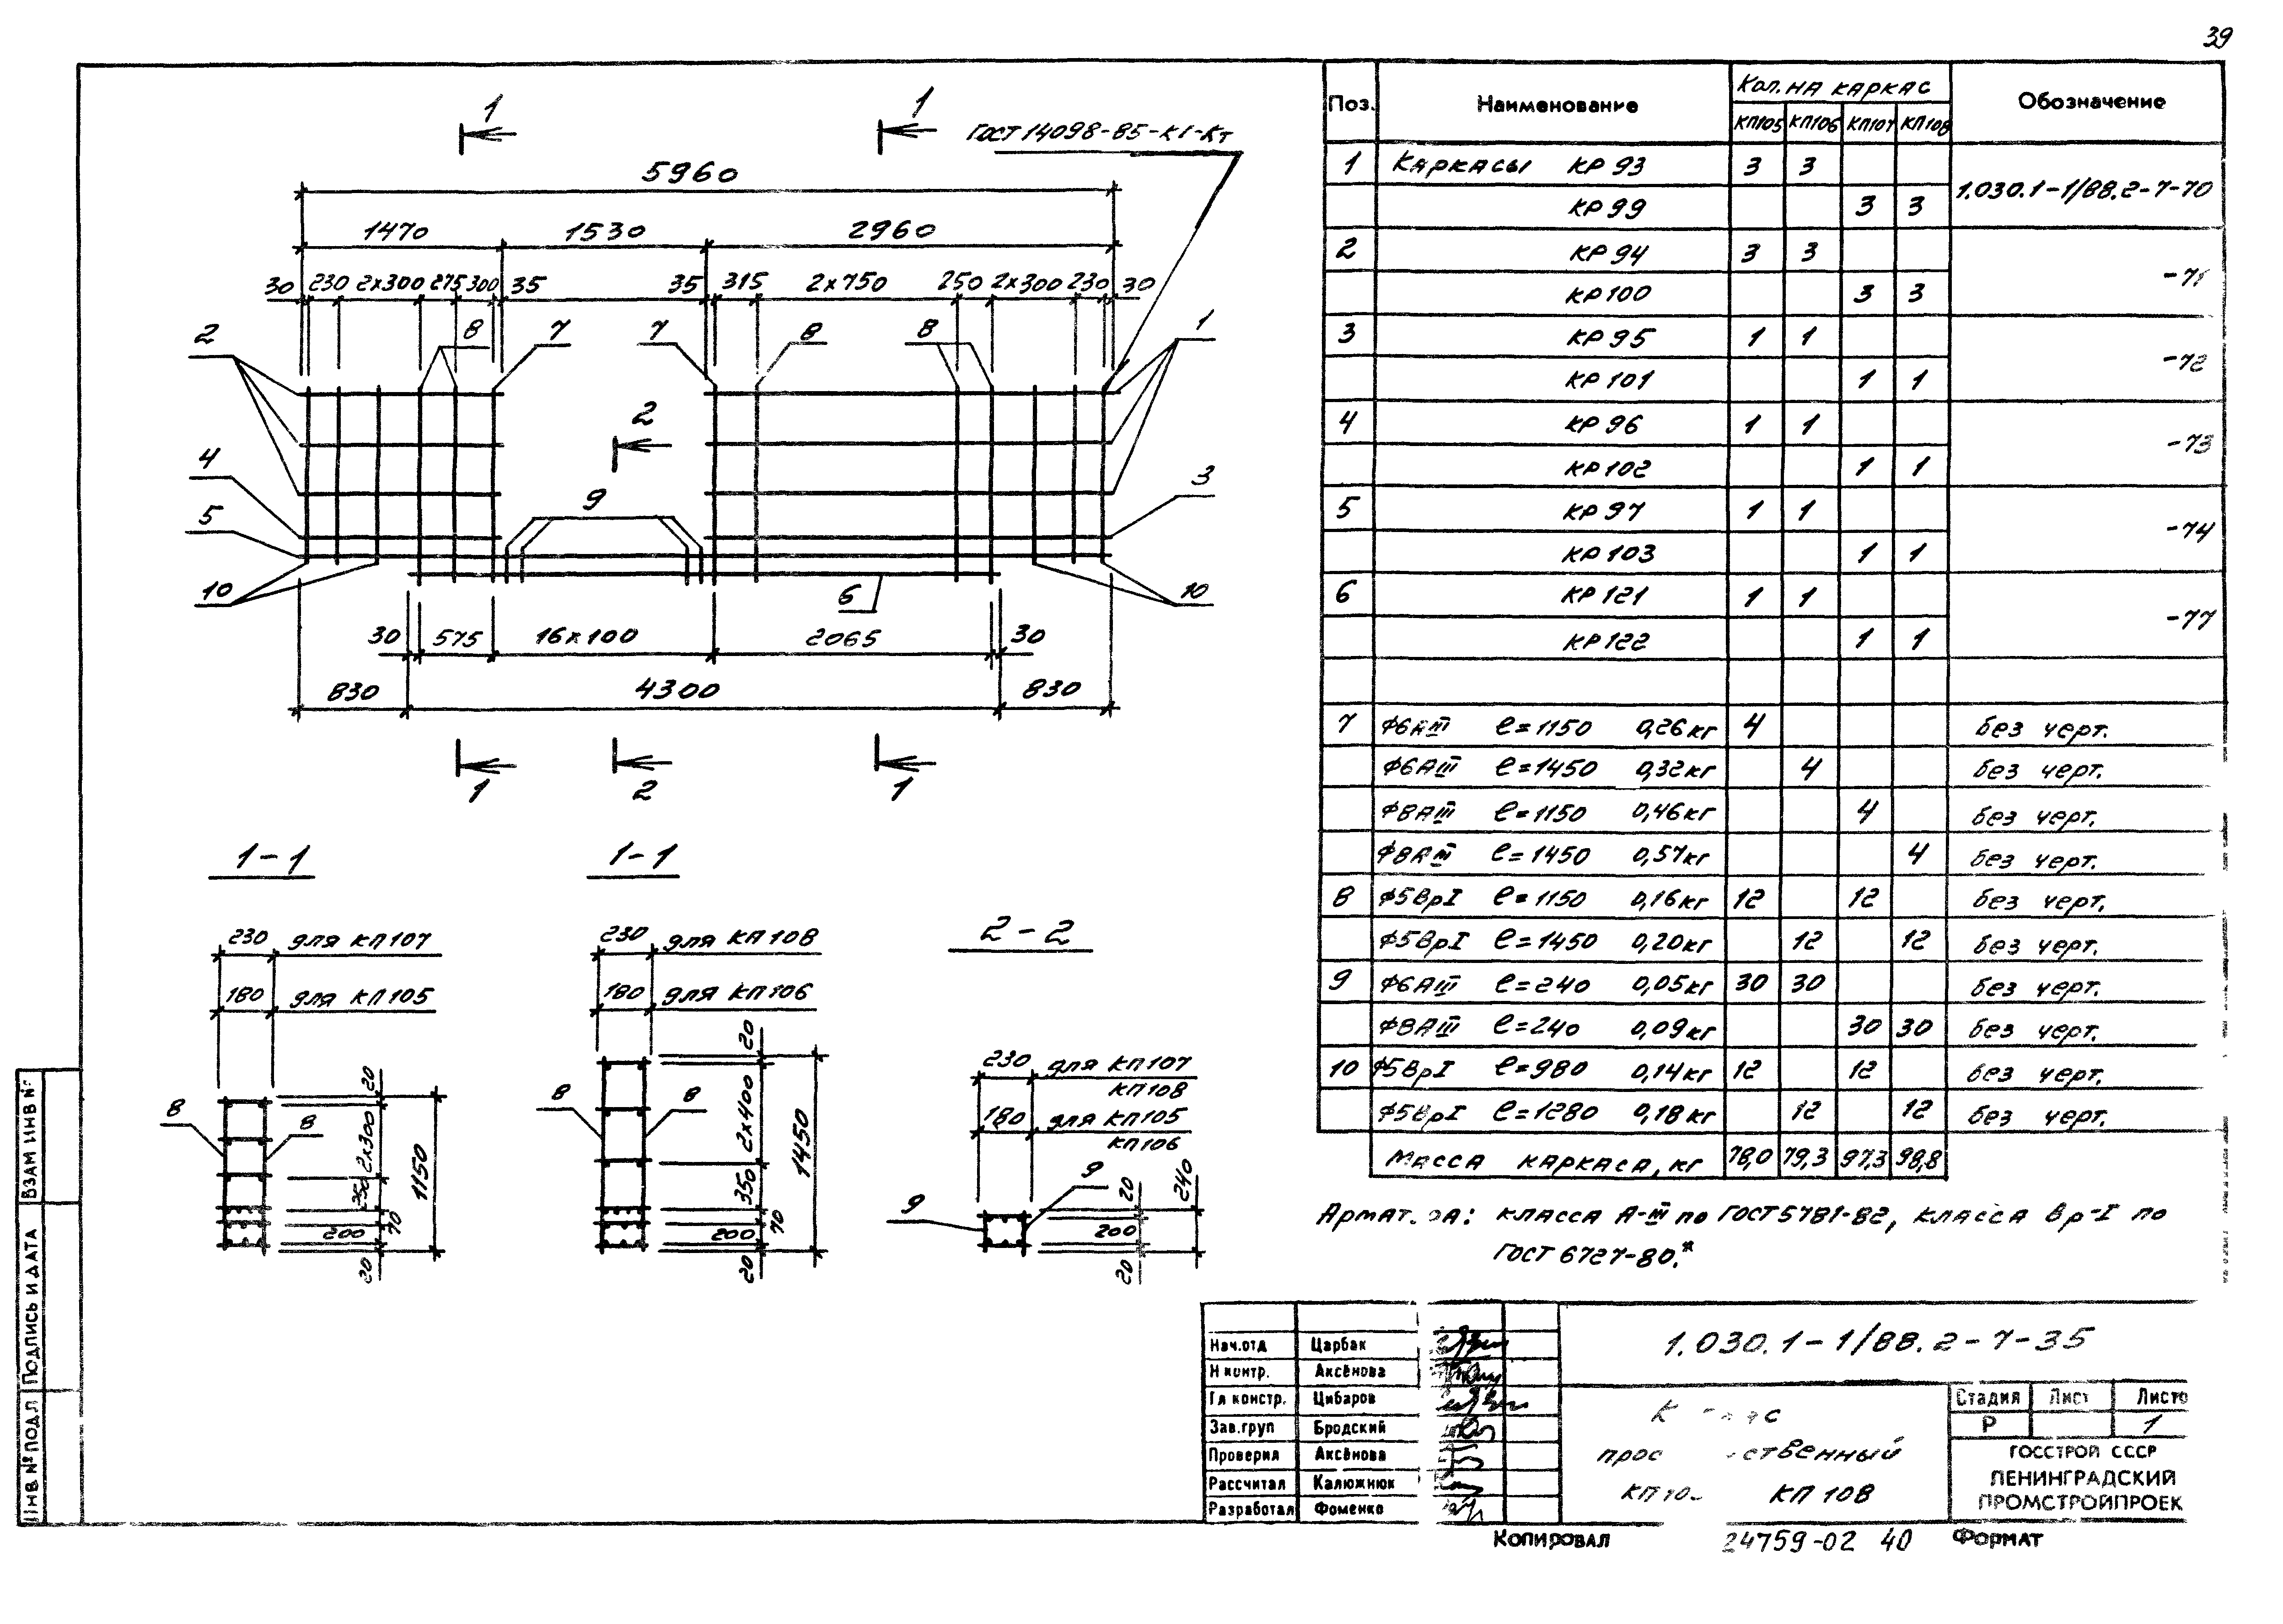 39
1 1
ГОСТ 14098-85-К1-Кт
5960
1470 1530 2960
30 230 2×300 275 300 35 35 315 2×750 250 2×300 230 30
2 8 7 7 8 8 1
2
4 9 3
5
10 6 10
30 575 16×100 2065 30
830 4300 830
1 2 1
1-1
230 для КП107
180 для КП105
8 8
20
2×300
250
70
200
20
1150
1-1
230 для КП108
180 для КП106
8 8
20
2×400
350
70
200
20
1450
2-2
230 для КП107
КП108
180 для КП105
КП106
9 9
20
200
20
240
Поз. Наименование Кол. на каркас Обозначение
КП105 КП106 КП107 КП108
1 Каркасы КР93 3 3 1.030.1-1/88.2-7-70
КР99 3 3
2 КР94 3 3 -71
КР100 3 3
3 КР95 1 1 -72
КР101 1 1
4 КР96 1 1 -73
КР102 1 1
5 КР97 1 1 -74
КР103 1 1
6 КР121 1 1 -77
КР122 1 1
7 Ф6АIII ℓ=1150 0,26кг 4 без черт.
Ф6АIII ℓ=1450 0,32кг 4 без черт.
Ф8АIII ℓ=1150 0,46кг 4 без черт.
Ф8АIII ℓ=1450 0,57кг 4 без черт.
8 Ф5ВрI ℓ=1150 0,16кг 12 12 без черт.
Ф5ВрI ℓ=1450 0,20кг 12 12 без черт.
9 Ф6АIII ℓ=240 0,05кг 30 30 без черт.
Ф8АIII ℓ=240 0,09кг 30 30 без черт.
10 Ф5ВрI ℓ=980 0,14кг 12 12 без черт.
Ф5ВрI ℓ=1280 0,18кг 12 12 без черт.
Масса каркаса, кг 78,0 79,3 97,3 98,8
класса А-III по ГОСТ 5781-82, класса Вр-I по
ГОСТ 6727-80.*
1.030.1-1/88.2-7-35
Нач.отд Царбак
Н контр. Аксёнова
Гл констр. Цибаров
Зав.груп Бродский
Проверил Аксёнова
Рассчитал Калюжнюк
Разработал Фоменко
КП 108
Стадия Лист Листо
Р 1
ГОССТРОЙ СССР
ЛЕНИНГРАДСКИЙ
ПРОМСТРОЙПРОЕК
Копировал 24759-02 40 Формат
ВЗАМ ИНВ №
Подпись и дата
ИНВ № ПОДЛ